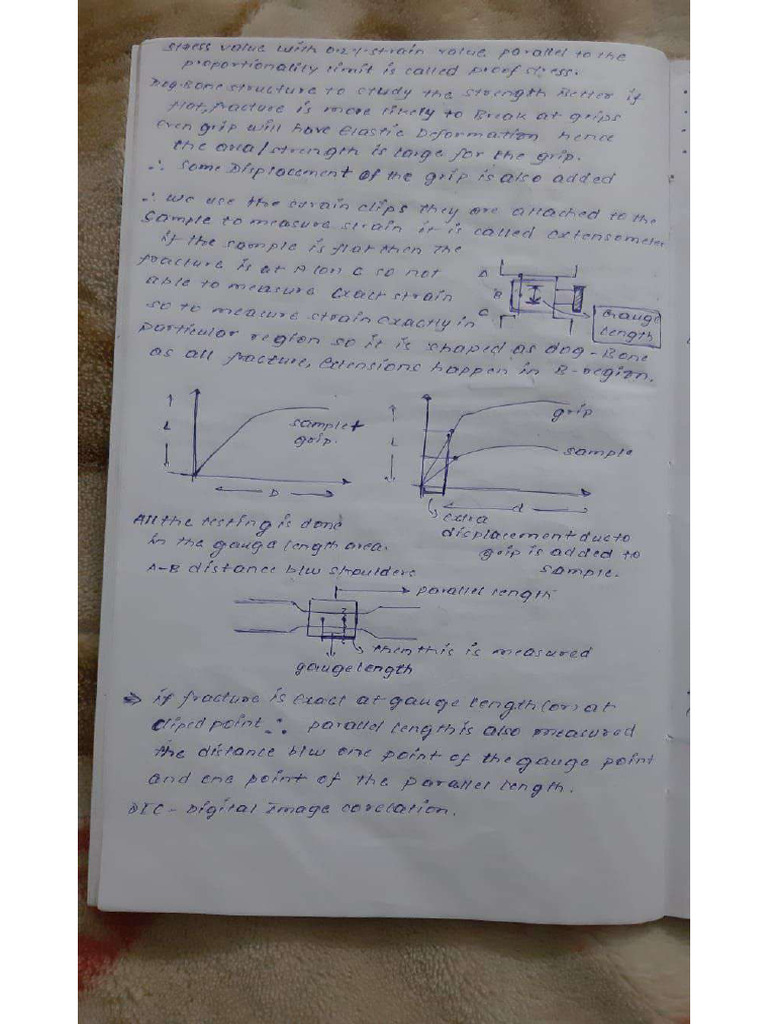 stress value with 0.2% strain value parallel to the
proportionality limit is called proof stress.
Dog-Bone structure to study the strength Better if
flat, fracture is more likely to Break at grips
even grip will have Elastic Deformation hence
the axial strength is large for the grip.
∴ Some Displacement of the grip is also added
∴ we use the strain clips they are attached to the
Sample to measure strain it is called extensometer
if the sample is flat then the
fracture is at A (or) C so not
able to measure Exact strain
so to measure strain exactly in
particular region so it is shaped as dog-Bone
as all fracture, extensions happen in B-region.
A
B
C
Gauge
length
L
sample +
grip.
D
L
grip
sample
d
extra
displacement due to
grip is added to
sample.
All the testing is done
in the gauge length area.
A-B distance b/w shoulders
parallel length
then this is measured
gauge length
⇒ if fracture is exact at gauge length (or) at
cliped point ∴ parallel length is also measured
the distance b/w one point of the gauge point
and one point of the parallel length.
DIC - Digital Image corelation.